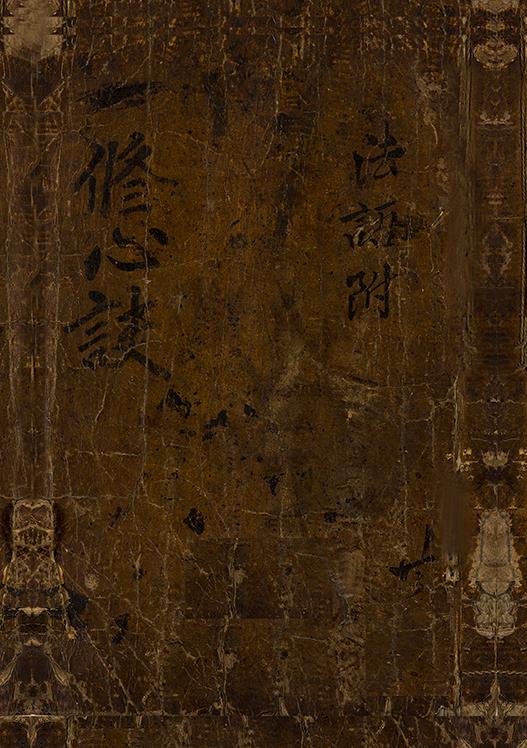 法語附
一修心訣